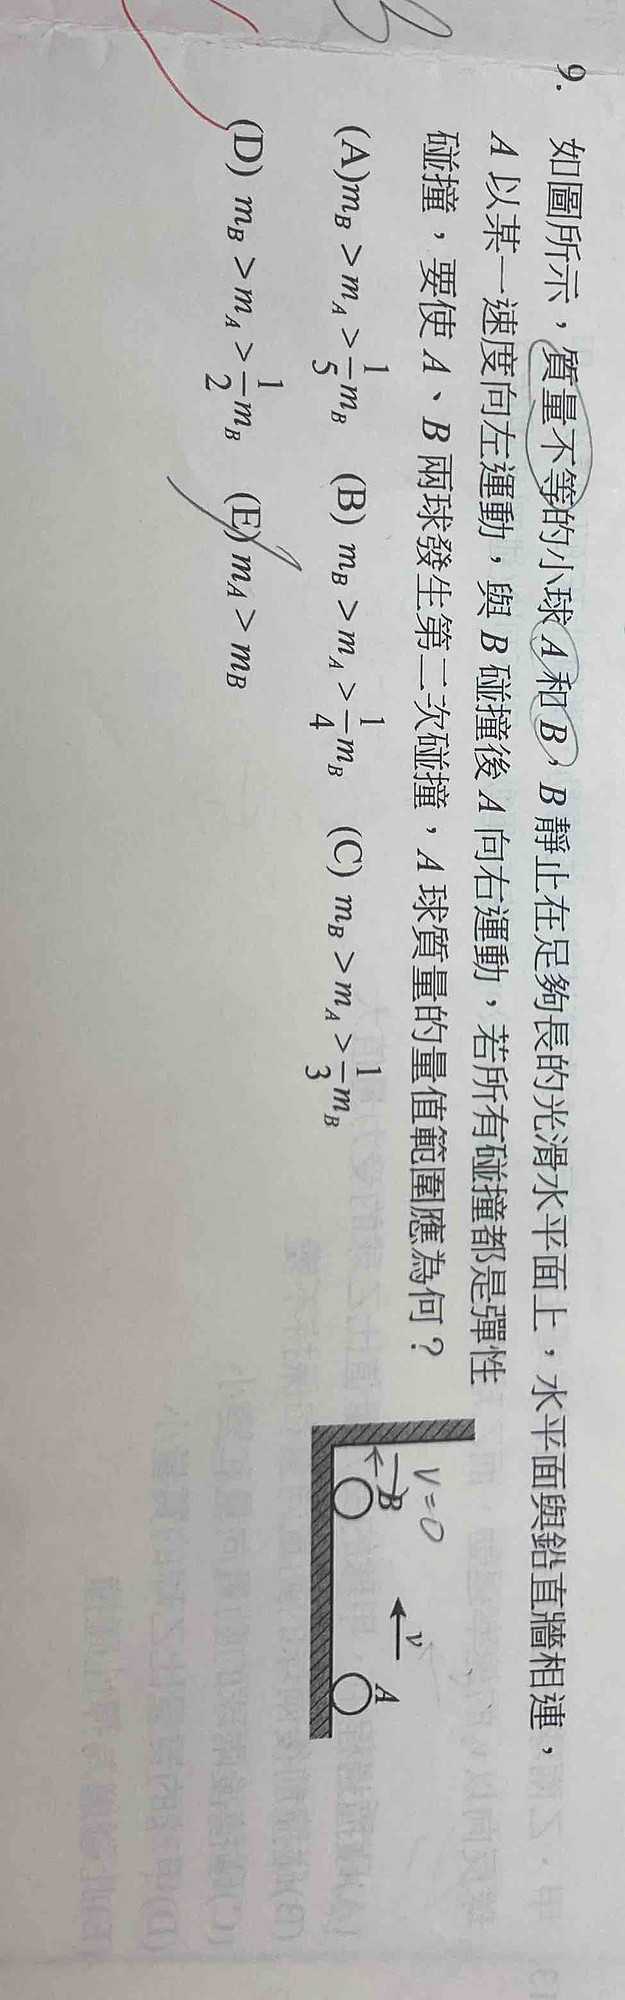 9. 如圖所示，質量不等的小球 A 和 B，B 靜止在足夠長的光滑水平面上，水平面與鉛直牆相連，
A 以某一速度向左運動，與 B 碰撞後 A 向右運動，若所有碰撞都是彈性
碰撞，要使 A、B 兩球發生第二次碰撞，A 球質量的量值範圍應為何？
(A) m_B > m_A > 1/5 m_B (B) m_B > m_A > 1/4 m_B (C) m_B > m_A > 1/3 m_B
(D) m_B > m_A > 1/2 m_B (E) m_A > m_B
V=0
B
v
A